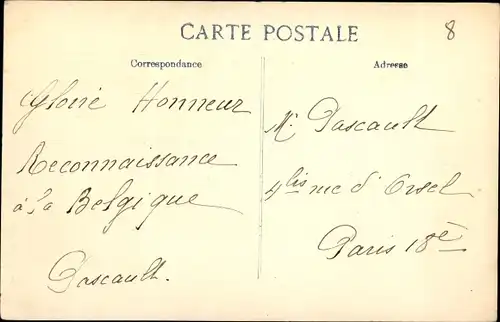 CARTE POSTALE
8
Correspondance
Gloire Honneur
Reconnaissance
à la Belgique
Pascault.
Adresse
Mr Pascault
4 bis rue d'Orsel
Paris 18è